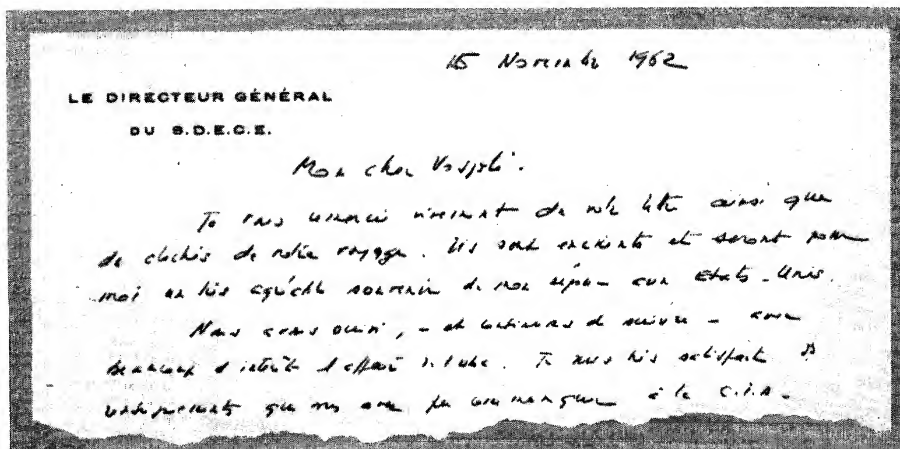 15 Novembre 1962
LE DIRECTEUR GÉNÉRAL
DU S.D.E.C.E.
Mon cher Vosjoli.
Je vous remercie vivement de votre lettre ainsi que
de clichés de notre voyage. Ils sont excellents et seront pour
moi un très agréable souvenir de mon séjour aux Etats-Unis.
Nous avons suivi, - et continuons de suivre - avec
beaucoup d'intérêt l'affaire de Cuba. Je suis très satisfait des
renseignements que vous avez pu communiquer à la C.I.A.